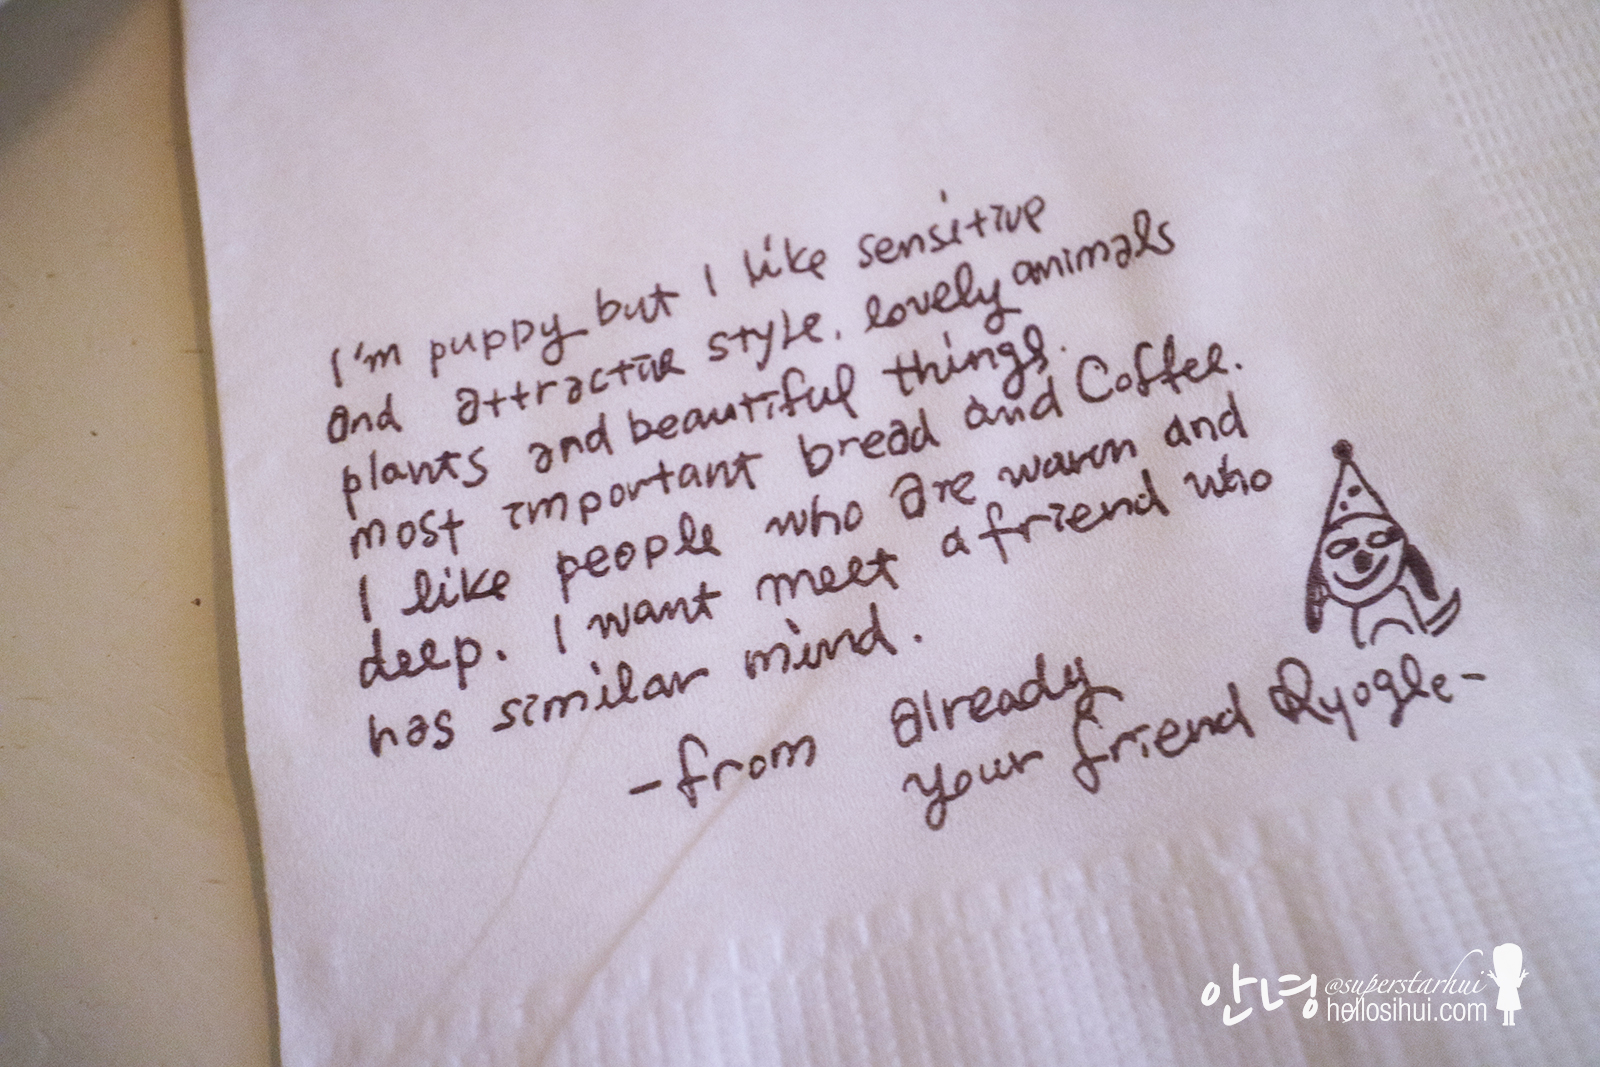 I'm puppy but I like sensitive
and attractive style. lovely animals
plants and beautiful things.
most important bread and Coffee.
I like people who are warm and
deep. I want meet a friend who
has similar mind.
-from already
your friend Ryogle-
안녕 @superstarhui
hellosihui.com